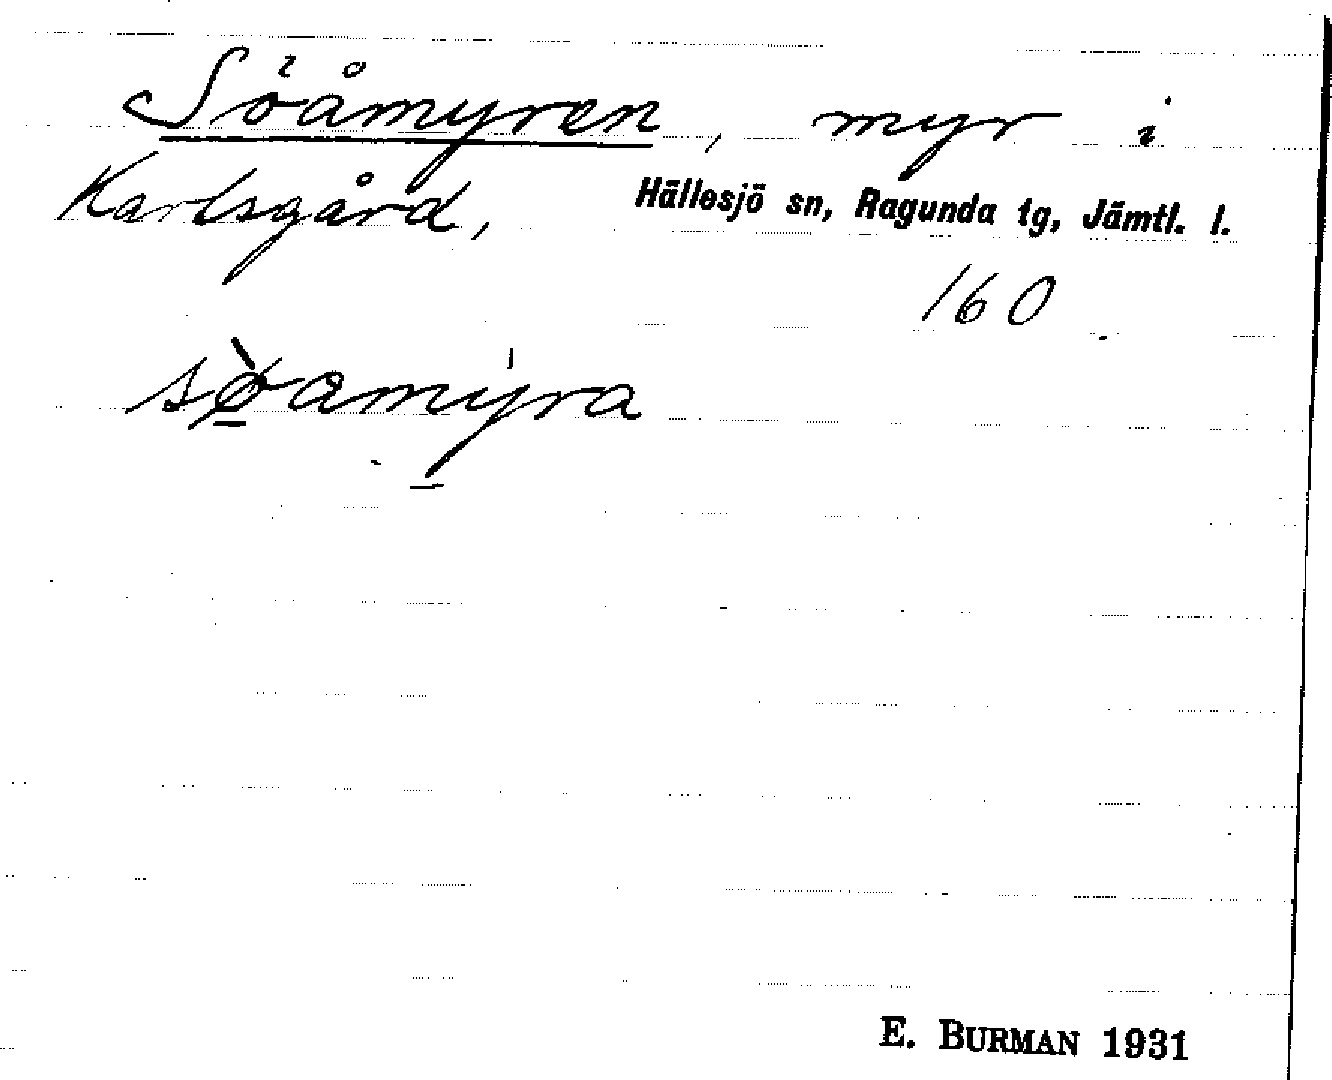 Söåmyren, myr i
Karlsgård, Hällesjö sn, Ragunda tg, Jämtl. l.
160
sø̀amy̍ra
E. BURMAN 1931